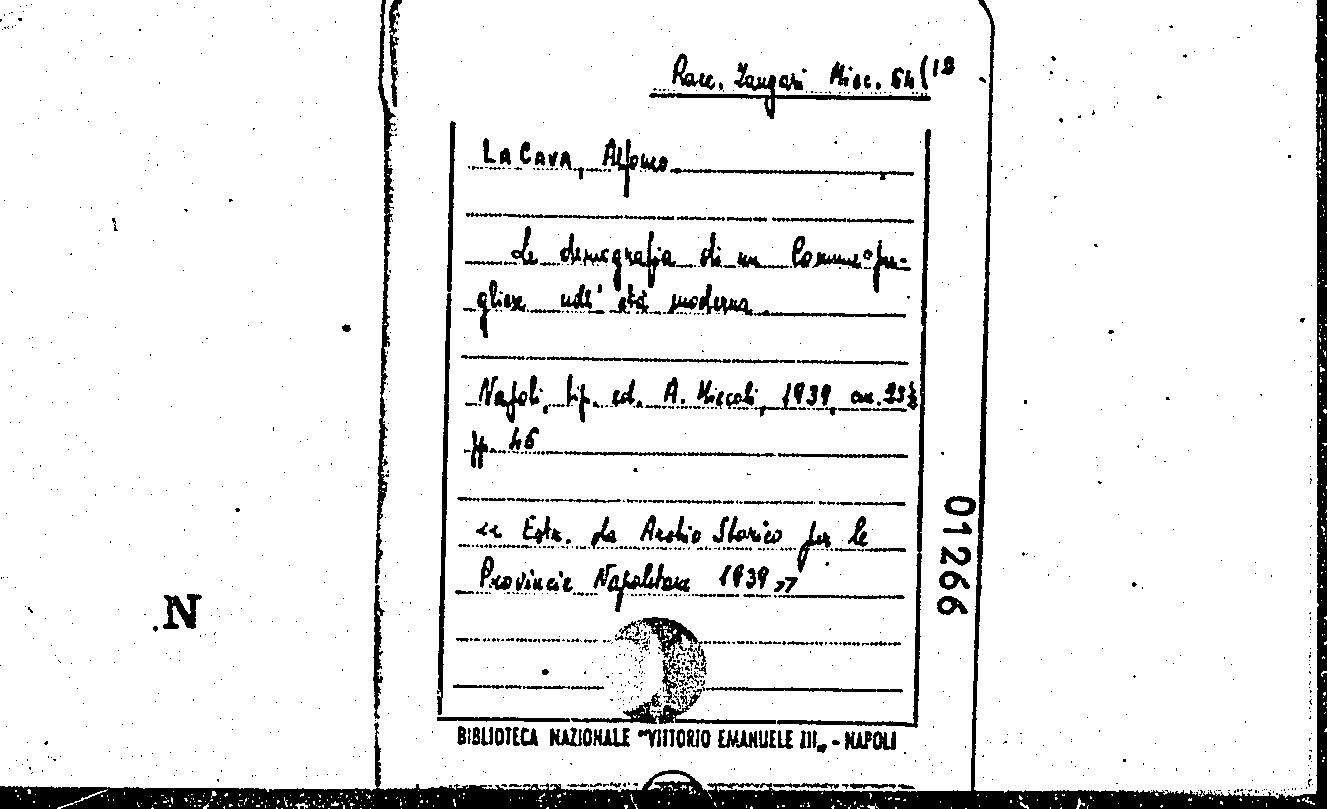 Racc. Zangari Misc. 64(18
LA CAVA, Alfonso
La demografia di un Comune pu-
gliese nell'età moderna
Napoli, tip. ed. A. Miccoli, 1939, cm. 23½
pp. 46
« Estr. da Archivio Storico per le
Provincie Napoletane 1939 »
01266
N
BIBLIOTECA NAZIONALE "VITTORIO EMANUELE III„ - NAPOLI